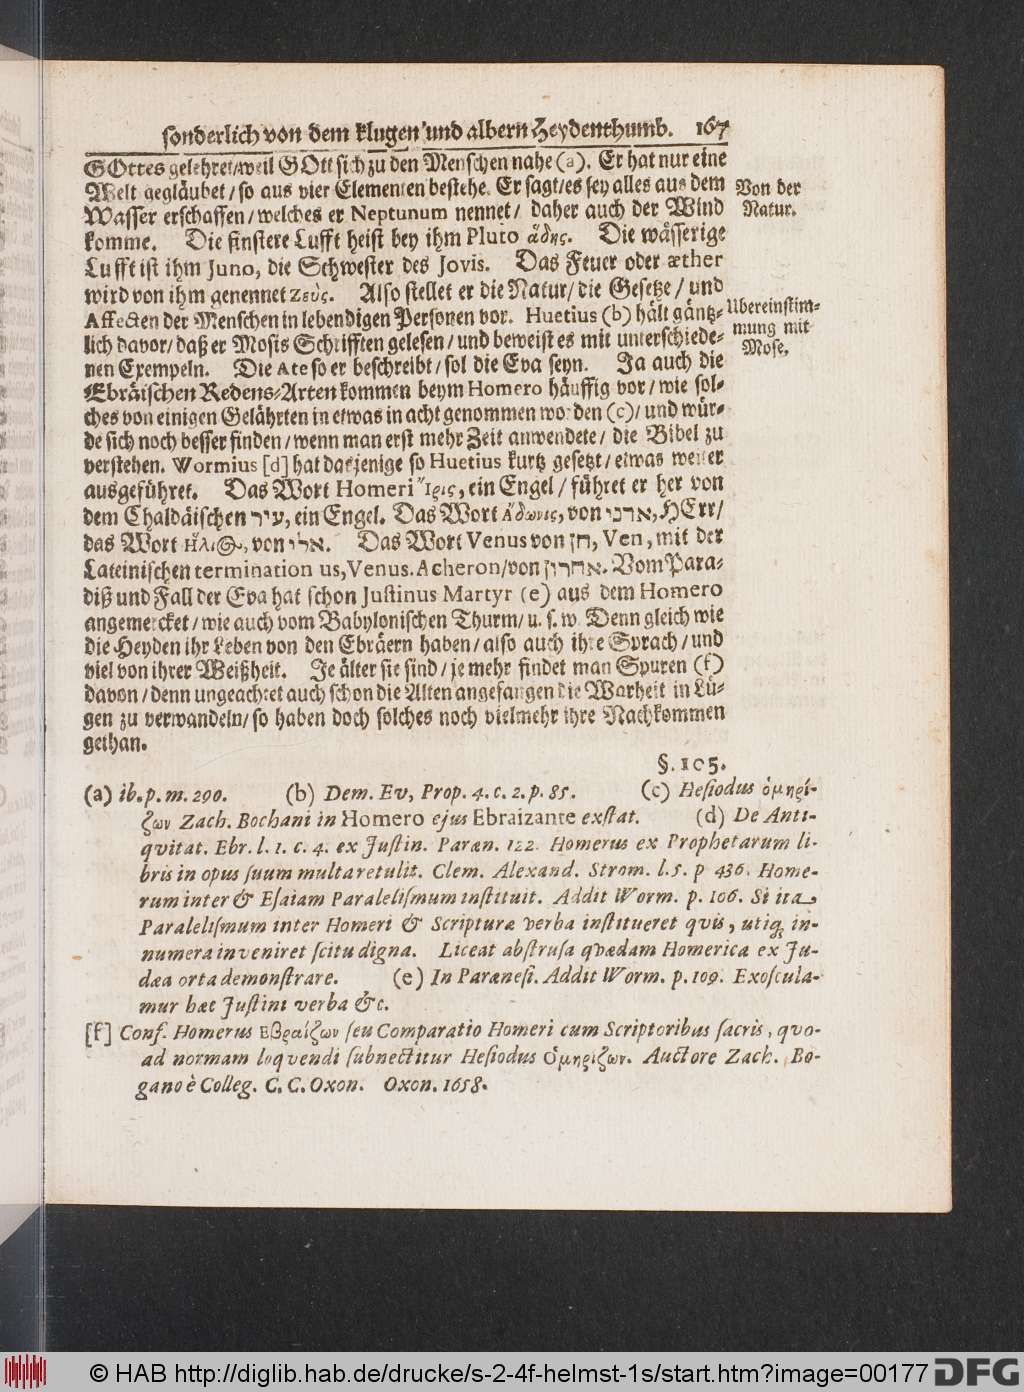 sonderlich von dem klugen und albern Heydenthumb. 167
GOttes gelehret/weil GOtt sich zu den Menschen nahe (a). Er hat nur eine
Welt gegläubet / so aus vier Elementen bestehe. Er sagt/es sey alles aus dem
Wasser erschaffen / welches er Neptunum nennet / daher auch der Wind
komme. Die finstere Lufft heist bey ihm Pluto ἅδης. Die wässerige
Lufft ist ihm Juno, die Schwester des Jovis. Das Feuer oder æther
wird von ihm genennet Ζεὺς. Also stellet er die Natur / die Gesetze / und
Affecten der Menschen in lebendigen Personen vor. Huetius (b) hält gäntz-
lich davor / daß er Mosis Schrifften gelesen / und beweist es mit unterschiede-
nen Exempeln. Die Ate so er beschreibt / sol die Eva seyn. Ja auch die
Ebräischen Redens-Arten kommen beym Homero häuffig vor / wie sol-
ches von einigen Gelährten in etwas in acht genommen worden (c) / und wür-
de sich noch besser finden / wenn man erst mehr Zeit anwendete / die Bibel zu
verstehen. Wormius [d] hat dasjenige so Huetius kurtz gesetzt / etwas weiter
ausgeführet. Das Wort Homeri Ἴρις, ein Engel / führet er her von
dem Chaldäischen עיר, ein Engel. Das Wort Ἄδωνις, von אדני, HErr /
das Wort Ἥλιος, von אלי. Das Wort Venus von חן, Ven, mit der
Lateinischen termination us, Venus. Acheron / von אחרון. Vom Para-
diß und Fall der Eva hat schon Justinus Martyr (e) aus dem Homero
angemercket / wie auch vom Babylonischen Thurm / u. s. w. Denn gleich wie
die Heyden ihr Leben von den Ebräern haben / also auch ihre Sprach / und
viel von ihrer Weißheit. Je älter sie sind / je mehr findet man Spuren (f)
davon / denn ungeachtet auch schon die Alten angefangen die Warheit in Lü-
gen zu verwandeln / so haben doch solches noch vielmehr ihre Nachkommen
gethan.
§. 105.
Von der
Natur.
Ubereinstim-
mung mit
Mose.
(a) ib. p. m. 290. (b) Dem. Ev, Prop. 4. c. 2. p. 85. (c) Hesiodus ὁμηρί-
ζων Zach. Bochani in Homero ejus Ebraizante exstat. (d) De Anti-
qvitat. Ebr. l. 1. c. 4. ex Justin. Paræn. 122. Homerus ex Prophetarum li-
bris in opus suum multa retulit. Clem. Alexand. Strom. l. 5. p 436. Home-
rum inter & Esaiam Paralelismum instituit. Addit Worm. p. 106. Si ita,
Paralelismum inter Homeri & Scripturæ verba institueret qvis, utiq; in-
numera inveniret scitu digna. Liceat abstrusa qvædam Homerica ex Ju-
dæa orta demonstrare. (e) In Parænesi. Addit Worm. p. 109. Exoscula-
mur hæc Justini verba &c.
[f] Conf. Homerus Εβραίζων seu Comparatio Homeri cum Scriptoribus sacris, qvo-
ad normam loqvendi subnectitur Hesiodus Ὁμηρίζων. Auctore Zach. Bo-
gano è Colleg. C. C. Oxon. Oxon. 1658.
© HAB http://diglib.hab.de/drucke/s-2-4f-helmst-1s/start.htm?image=00177 DFG